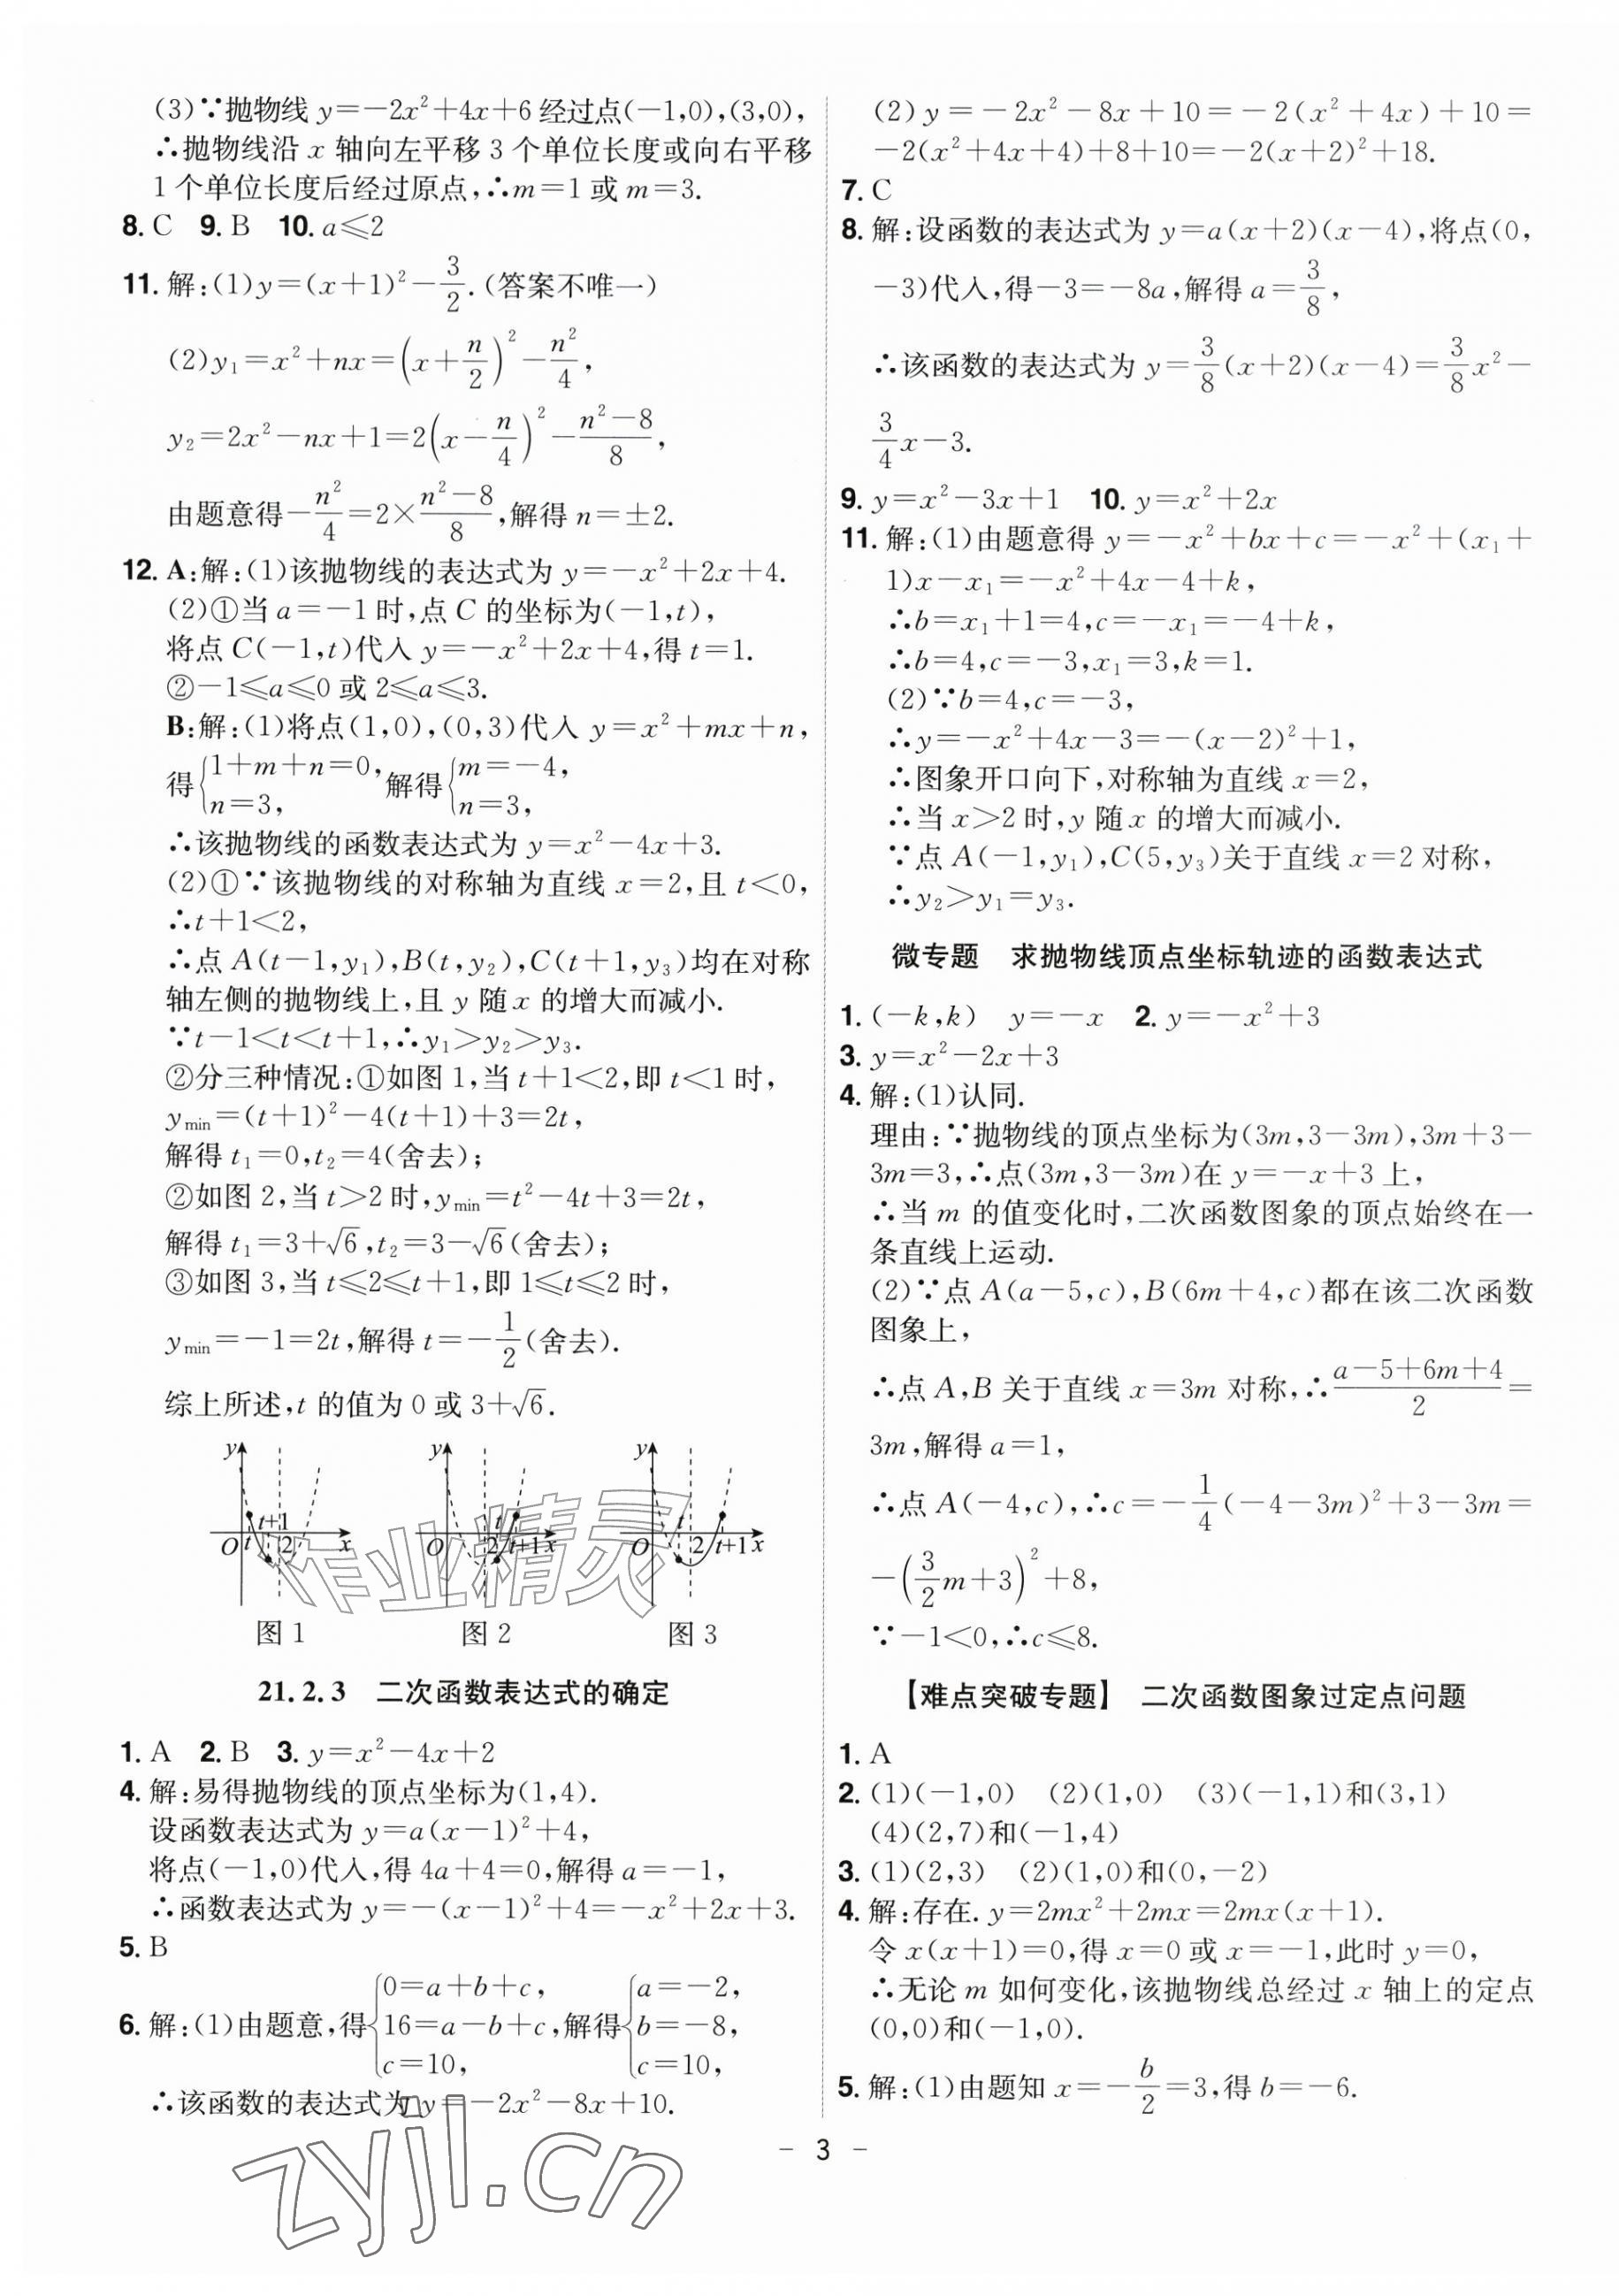 (3)∵抛物线 y=-2x²+4x+6 经过点(-1,0),(3,0),
∴抛物线沿 x 轴向左平移 3 个单位长度或向右平移
1 个单位长度后经过原点,∴m=1 或 m=3.
8. C 9. B 10. a≤2
11. 解:(1)y=(x+1)²-3/2.(答案不唯一)
(2)y₁=x²+nx=(x+n/2)²-n²/4,
y₂=2x²-nx+1=2(x-n/4)²-(n²-8)/8,
由题意得-n²/4=2×(n²-8)/8,解得 n=±2.
12. A:解:(1)该抛物线的表达式为 y=-x²+2x+4.
(2)①当 a=-1 时,点 C 的坐标为(-1,t),
将点 C(-1,t)代入 y=-x²+2x+4,得 t=1.
②-1≤a≤0 或 2≤a≤3.
B:解:(1)将点(1,0),(0,3)代入 y=x²+mx+n,
得{1+m+n=0, n=3, 解得{m=-4, n=3,
∴该抛物线的函数表达式为 y=x²-4x+3.
(2)①∵该抛物线的对称轴为直线 x=2,且 t<0,
∴t+1<2,
∴点 A(t-1,y₁),B(t,y₂),C(t+1,y₃)均在对称
轴左侧的抛物线上,且 y 随 x 的增大而减小.
∵t-1<t<t+1,∴y₁>y₂>y₃.
②分三种情况:①如图 1,当 t+1<2,即 t<1 时,
y_min=(t+1)²-4(t+1)+3=2t,
解得 t₁=0,t₂=4(舍去);
②如图 2,当 t>2 时,y_min=t²-4t+3=2t,
解得 t₁=3+√6,t₂=3-√6(舍去);
③如图 3,当 t≤2≤t+1,即 1≤t≤2 时,
y_min=-1=2t,解得 t=-1/2(舍去).
综上所述,t 的值为 0 或 3+√6.
y y y
t+1 t t
O t 2 x O 2 t+1 x O 2 t+1 x
图 1 图 2 图 3
作业精灵
21.2.3 二次函数表达式的确定
1. A 2. B 3. y=x²-4x+2
4. 解:易得抛物线的顶点坐标为(1,4).
设函数表达式为 y=a(x-1)²+4,
将点(-1,0)代入,得 4a+4=0,解得 a=-1,
∴函数表达式为 y=-(x-1)²+4=-x²+2x+3.
5. B
6. 解:(1)由题意,得{0=a+b+c, 16=a-b+c, c=10, 解得{a=-2, b=-8, c=10,
∴该函数的表达式为 y=-2x²-8x+10.
zyjl.cn
(2)y=-2x²-8x+10=-2(x²+4x)+10=
-2(x²+4x+4)+8+10=-2(x+2)²+18.
7. C
8. 解:设函数的表达式为 y=a(x+2)(x-4),将点(0,
-3)代入,得-3=-8a,解得 a=3/8,
∴该函数的表达式为 y=3/8(x+2)(x-4)=3/8x²-
3/4x-3.
9. y=x²-3x+1 10. y=x²+2x
11. 解:(1)由题意得 y=-x²+bx+c=-x²+(x₁+
1)x-x₁=-x²+4x-4+k,
∴b=x₁+1=4,c=-x₁=-4+k,
∴b=4,c=-3,x₁=3,k=1.
(2)∵b=4,c=-3,
∴y=-x²+4x-3=-(x-2)²+1,
∴图象开口向下,对称轴为直线 x=2,
∴当 x>2 时,y 随 x 的增大而减小.
∵点 A(-1,y₁),C(5,y₃)关于直线 x=2 对称,
∴y₂>y₁=y₃.
微专题 求抛物线顶点坐标轨迹的函数表达式
1. (-k,k) y=-x 2. y=-x²+3
3. y=x²-2x+3
4. 解:(1)认同.
理由:∵抛物线的顶点坐标为(3m,3-3m),3m+3-
3m=3,∴点(3m,3-3m)在 y=-x+3 上,
∴当 m 的值变化时,二次函数图象的顶点始终在一
条直线上运动.
(2)∵点 A(a-5,c),B(6m+4,c)都在该二次函数
图象上,
∴点 A,B 关于直线 x=3m 对称,∴(a-5+6m+4)/2=
3m,解得 a=1,
∴点 A(-4,c),∴c=-1/4(-4-3m)²+3-3m=
-(3/2m+3)²+8,
∵-1<0,∴c≤8.
【难点突破专题】 二次函数图象过定点问题
1. A
2. (1)(-1,0) (2)(1,0) (3)(-1,1)和(3,1)
(4)(2,7)和(-1,4)
3. (1)(2,3) (2)(1,0)和(0,-2)
4. 解:存在. y=2mx²+2mx=2mx(x+1).
令 x(x+1)=0,得 x=0 或 x=-1,此时 y=0,
∴无论 m 如何变化,该抛物线总经过 x 轴上的定点
(0,0)和(-1,0).
5. 解:(1)由题知 x=-b/2=3,得 b=-6.
- 3 -